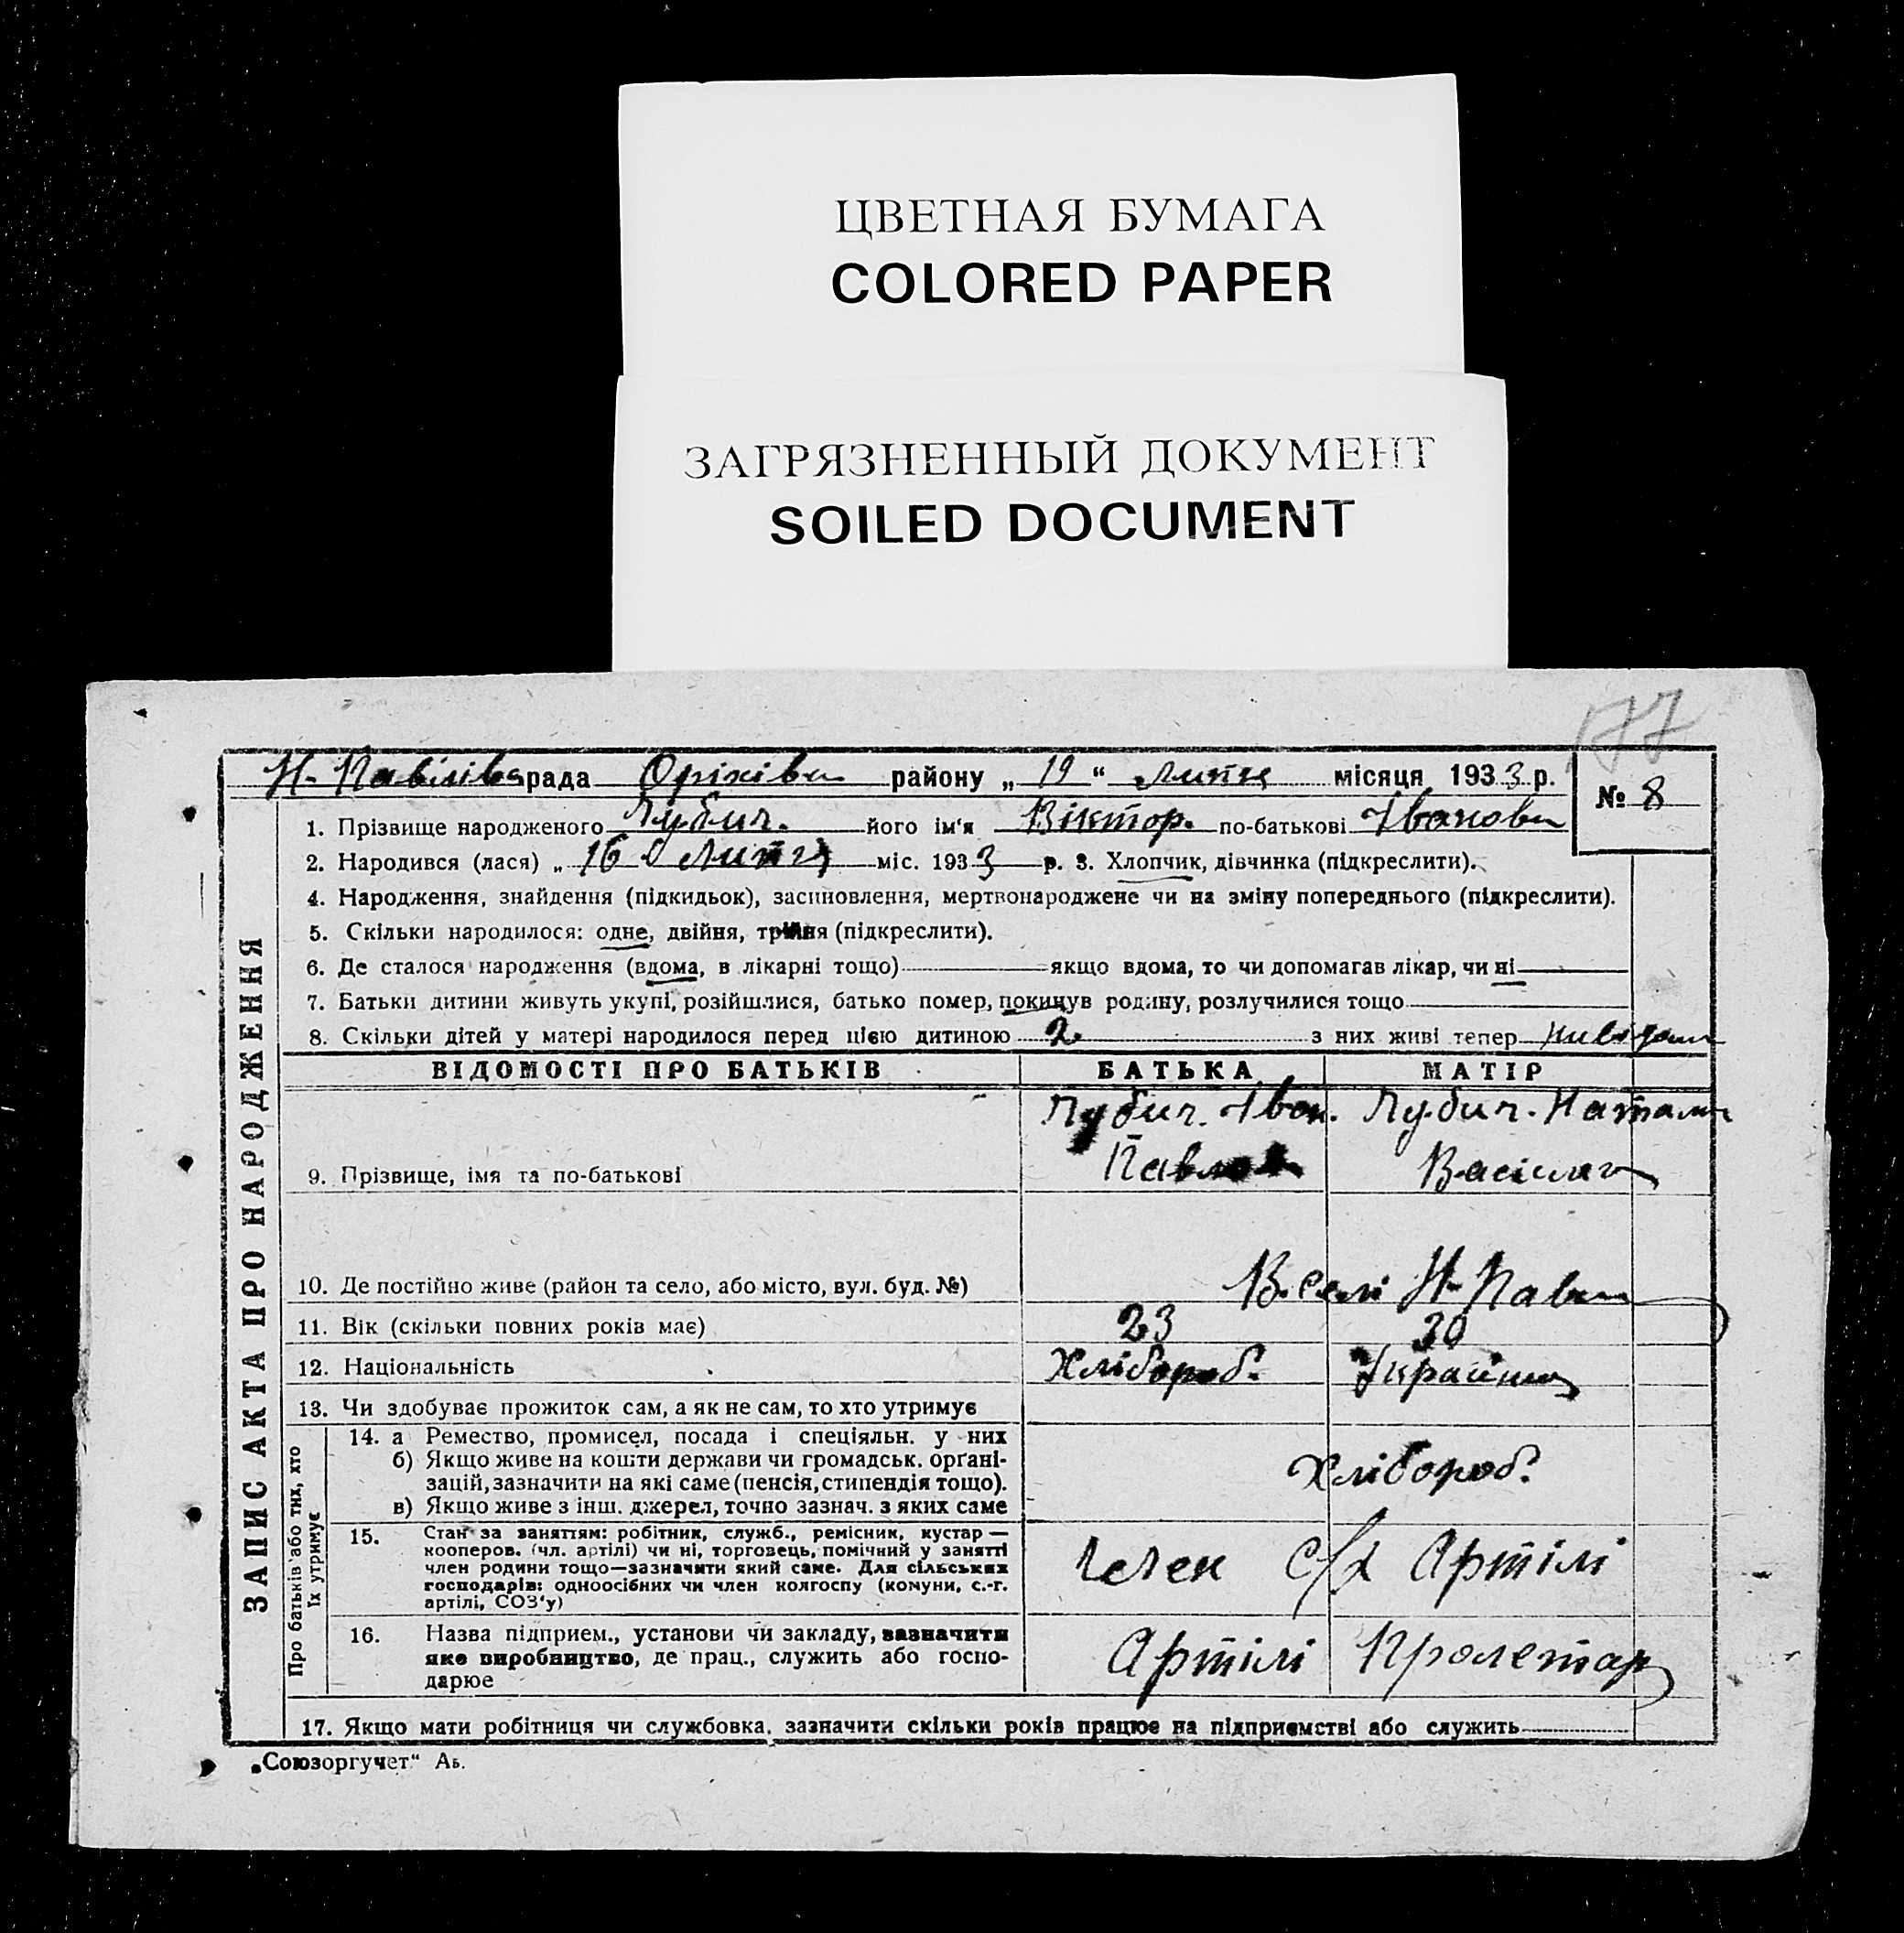 ЦВЕТНАЯ БУМАГА
COLORED PAPER
ЗАГРЯЗНЕННЫЙ ДОКУМЕНТ
SOILED DOCUMENT
177
Н- Павлівс рада Оріхівськ району „ 19 “ липня місяця 1933 р.
№ 8
1. Прізвище народженого його ім'я Віктор. по-батькові Іванови
2. Народився (лася) „ 16 липня міс. 1933 р. 3. Хлопчик, дівчинка (підкреслити).
4. Народження, знайдення (підкидьок), засиновлення, мертвонароджене чи на зміну попереднього (підкреслити).
5. Скільки народилося: одне, двійня, трійня (підкреслити).
6. Де сталося народження (вдома, в лікарні тощо) якщо вдома, то чи допомагав лікар, чи ні
7. Батьки дитини живуть укупі, розійшлися, батько помер, покинув родину, розлучилися тощо
8. Скільки дітей у матері народилося перед цією дитиною 2 з них живі тепер
ВІДОМОСТІ ПРО БАТЬКІВ БАТЬКА МАТІР
Іван. Натали
9. Прізвище, імя та по-батькові Павло Васілів
10. Де постійно живе (район та село, або місто, вул. буд. №) В. селі Н- Павл
11. Вік (скільки повних років має) 23 30
12. Національність Хлібороб. Українка
13. Чи здобуває прожиток сам, а як не сам, то хто утримує
14. а Ремество, промисел, посада і спеціяльн. у них
б) Якщо живе на кошти держави чи громадськ. орґані-
зацій, зазначити на які саме (пенсія, стипендія тощо).
в) Якщо живе з інш. джерел, точно зазнач. з яких саме
Хлібороб.
15. Стан за заняттям: робітник, служб., ремісник, кустар —
кооперов. (чл. артілі) чи ні, торговець, помічний у занятті
член родини тощо—зазначити який саме. Для сільських
господарів: одноосібних чи член колгоспу (комуни, с.-г.
артілі, СОЗ'у)
член с/х Артілі
16. Назва підприєм., установи чи закладу, зазначити
яке виробництво, де прац., служить або госпо-
дарює
Артілі Пролетар
17. Якщо мати робітниця чи службовка, зазначити скільки років працює на підприємстві або служить
ЗАПИС АКТА ПРО НАРОДЖЕННЯ
Про батьків або тих, хто
їх утримує
„Союзоргучет“ Аь.